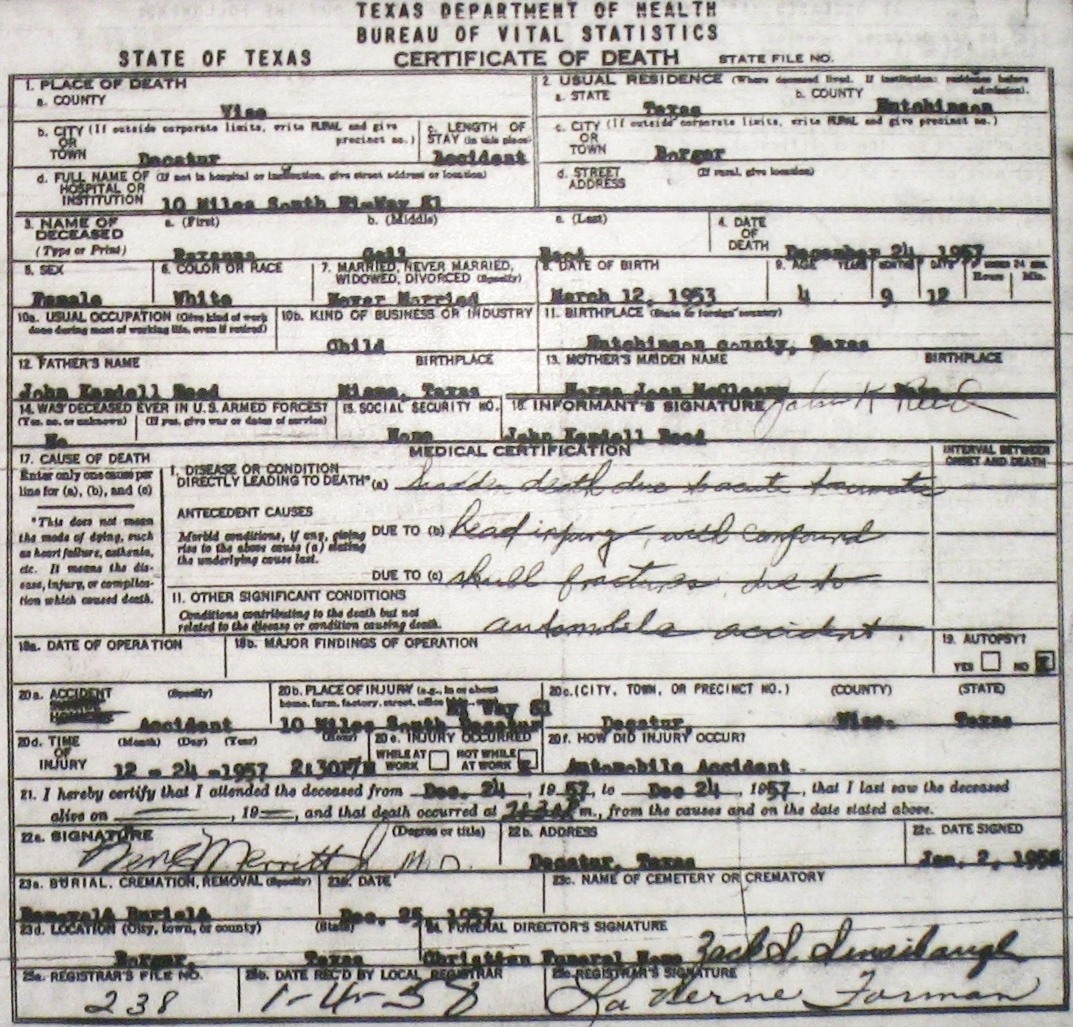 TEXAS DEPARTMENT OF HEALTH
BUREAU OF VITAL STATISTICS
STATE OF TEXAS CERTIFICATE OF DEATH STATE FILE NO.
1. PLACE OF DEATH 2. USUAL RESIDENCE (Where deceased lived. If institution: residence before admission).
a. COUNTY Wise a. STATE Texas b. COUNTY Hutchinson
b. CITY (If outside corporate limits, write RURAL and give precinct no.) OR TOWN Decatur c. LENGTH OF STAY (in this place) Accident c. CITY (If outside corporate limits, write RURAL and give precinct no.) OR TOWN Borger
d. FULL NAME OF (If not in hospital or institution, give street address or location) HOSPITAL OR INSTITUTION 10 Miles South Hi-Way 81 d. STREET ADDRESS (If rural, give location)
3. NAME OF DECEASED (Type or Print) a. (First) Roxanna b. (Middle) Gail c. (Last) Reed 4. DATE OF DEATH December 24, 1957
5. SEX Female 6. COLOR OR RACE White 7. MARRIED, NEVER MARRIED, WIDOWED, DIVORCED (Specify) Never Married 8. DATE OF BIRTH March 12, 1953 9. AGE YEARS 4 MONTHS 9 DAYS 12 IF UNDER 24 HRS. Hours Min.
10a. USUAL OCCUPATION (Give kind of work done during most of working life, even if retired) 10b. KIND OF BUSINESS OR INDUSTRY Child 11. BIRTHPLACE (State or foreign country) Hutchinson county, Texas
12. FATHER'S NAME John Kendell Reed BIRTHPLACE Miami, Texas 13. MOTHER'S MAIDEN NAME Norma Jean McCleary BIRTHPLACE
14. WAS DECEASED EVER IN U.S. ARMED FORCES? (Yes, no or unknown) (If yes, give war or dates of service) No 15. SOCIAL SECURITY NO. None 16. INFORMANT'S SIGNATURE John K Reed
John Kendell Reed
MEDICAL CERTIFICATION
17. CAUSE OF DEATH INTERVAL BETWEEN ONSET AND DEATH
Enter only one cause per line for (a), (b), and (c)
1. DISEASE OR CONDITION DIRECTLY LEADING TO DEATH* (a) Sudden death due to acute traumatic
*This does not mean the mode of dying, such as heart failure, asthenia, etc. It means the disease, injury, or complication which caused death.
ANTECEDENT CAUSES
Morbid conditions, if any, giving rise to the above cause (a) stating the underlying cause last.
DUE TO (b) head injury, with compound
DUE TO (c) skull fractures, due to
11. OTHER SIGNIFICANT CONDITIONS
Conditions contributing to the death but not related to the disease or condition causing death. automobile accident.
18a. DATE OF OPERATION 18b. MAJOR FINDINGS OF OPERATION 19. AUTOPSY?
YES NO
20a. ACCIDENT (Specify) Accident 20b. PLACE OF INJURY (e.g., in or about home, farm, factory, street, office Hi Way 81 10 Miles South Decatur 20c. (CITY, TOWN, OR PRECINCT NO.) Decatur (COUNTY) Wise. (STATE) Texas
20d. TIME OF INJURY (Month) (Day) (Year) (Hour) 12 - 24 - 1957 2:30P/M 20e. INJURY OCCURRED WHILE AT WORK NOT WHILE AT WORK 20f. HOW DID INJURY OCCUR? Automobile Accident
21. I hereby certify that I attended the deceased from Dec. 24, 1957, to Dec 24, 1957, that I last saw the deceased
alive on , 19 , and that death occurred at m., from the causes and on the date stated above.
22a. SIGNATURE (Degree or title) M.D. 22b. ADDRESS Decatur, Texas 22c. DATE SIGNED Jan. 2, 1958
23a. BURIAL, CREMATION, REMOVAL (Specify) Removal& Burial& 23b. DATE Dec. 25, 1957 23c. NAME OF CEMETERY OR CREMATORY
23d. LOCATION (City, town, or county) Borger, (State) Texas 24. FUNERAL DIRECTOR'S SIGNATURE Christian Funeral Home
25a. REGISTRAR'S FILE NO. 238 25b. DATE REC'D BY LOCAL REGISTRAR 1-4-58 25c. REGISTRAR'S SIGNATURE La Verne Forman